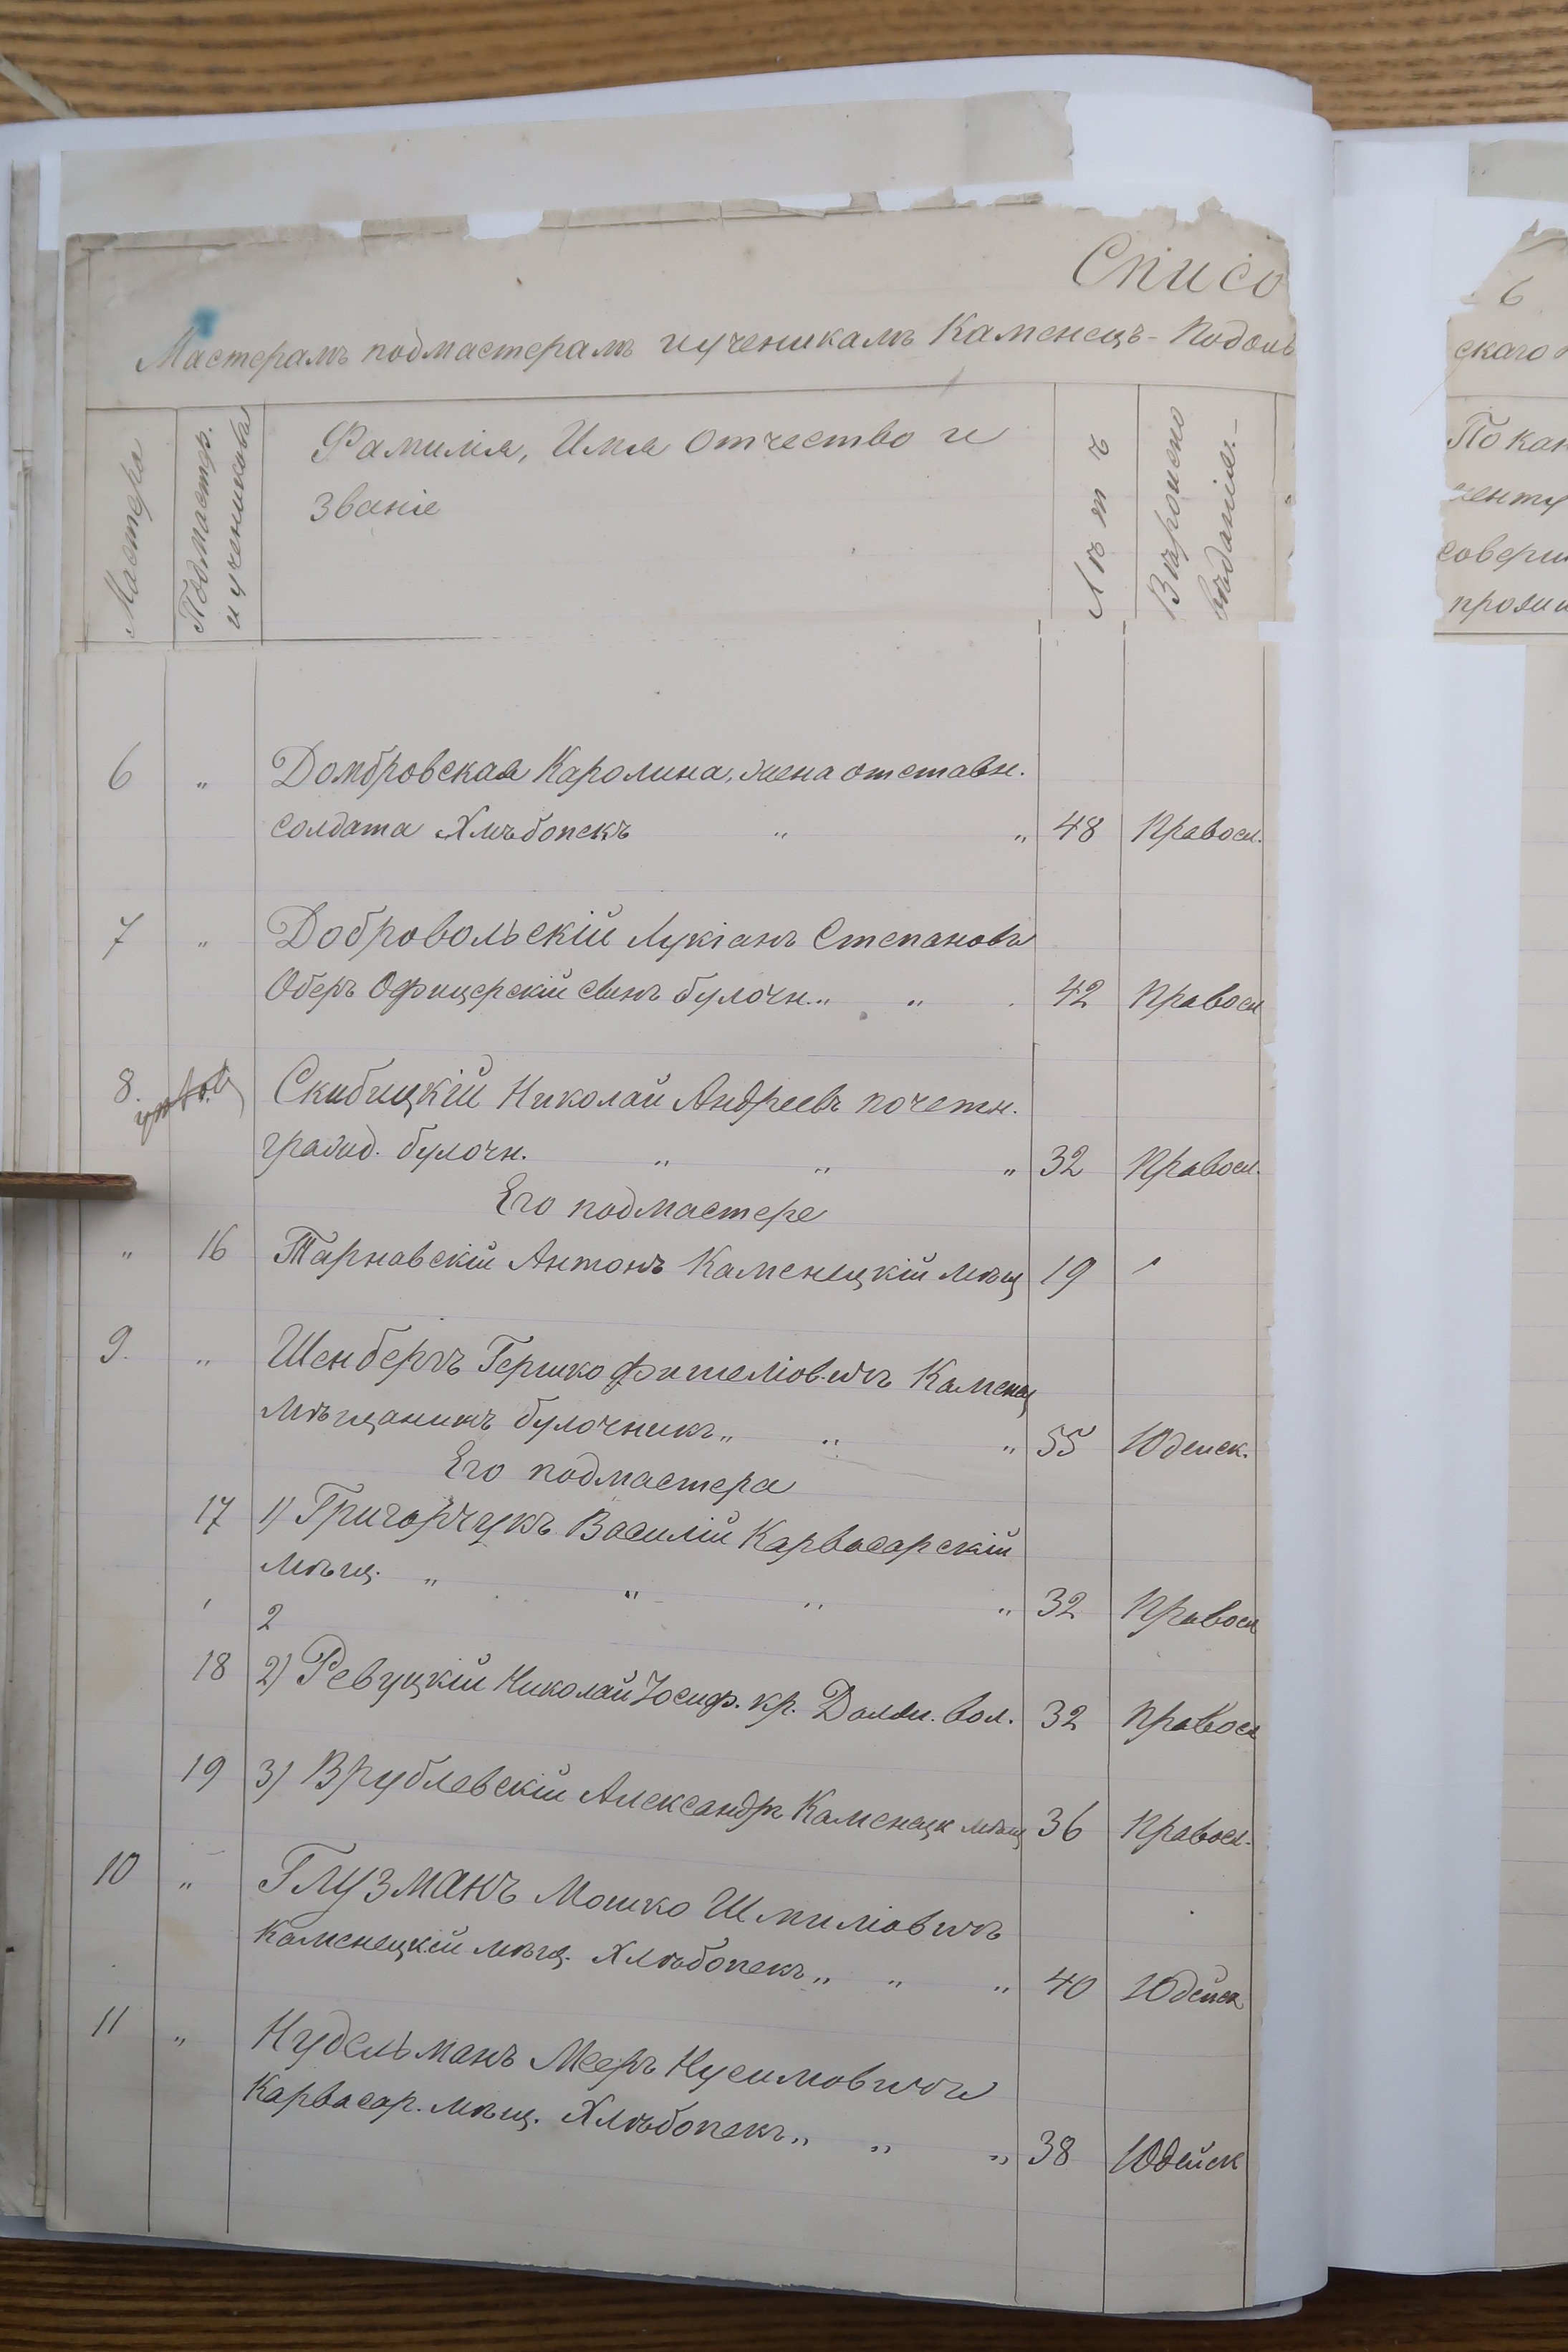 Списо
Мастерамъ подмастерамъ и ученикамъ Каменецъ-Подоль
Мастера
Подмастер. и учениковъ
Фамилія, Имя отчество и
званіе
Лѣтъ
Вѣроисповѣданіе.-
6 " Домбровская Каролина, жена отставн.
солдата Хлѣбопекъ " " 48 Правосл.
7 " Добровольскій Лукіанъ Степановъ
Оберъ Офицерскій сынъ булочн. " " 42 Правосл
8. Скибицкій Николай Андреевъ почетн.
гражд. булочн. " " " 32 Правосл.
Его подмастере
" 16 Тарнавскій Антонъ Каменецкій мѣщ 19 "
9. " Шенбергъ Гершко Фителіовичъ Каменец
мѣщанинъ булочникъ " " " 55 Юдейск.
Его подмастера
17 1) Григорчукъ Василій Карвасарскій
мѣщ. " " " " 32 Правосл
' 2
18 2) Ревуцкій Николай Іосиф. кр. Должк. вол. 32 Правосл
19 3) Врублевскій Александръ Каменецк мѣщ 36 Правосл.
10 " Глузманъ Мошко Шмиліовичъ
Каменецкій мѣщ. Хлѣбопекъ " " " 40 Юдейск
11 " Нудельманъ Мееръ Нусимовичъ
Карвасар. мѣщ. Хлѣбопекъ " " " 38 Юдейск
6
скаго
По как
менту
соверш
прожи